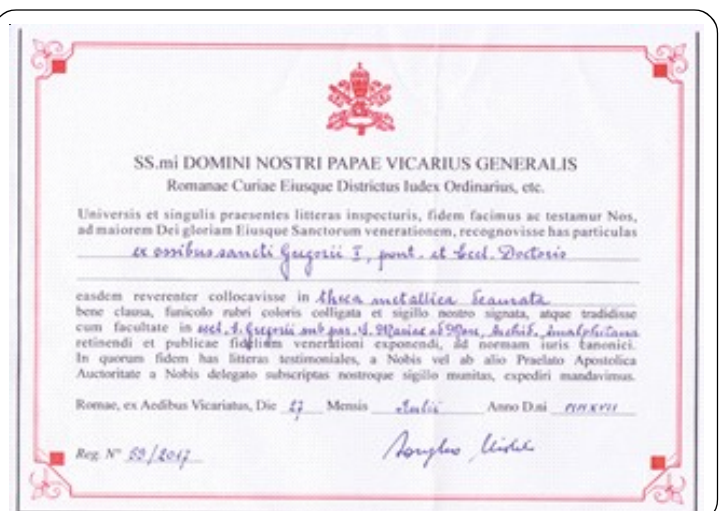 SS.mi DOMINI NOSTRI PAPAE VICARIUS GENERALIS
Romanae Curiae Eiusque Districtus Iudex Ordinarius, etc.
Universis et singulis praesentes litteras inspecturis, fidem facimus ac testamur Nos,
ad maiorem Dei gloriam Eiusque Sanctorum venerationem, recognovisse has particulas
ex ossibus sancti Gregorii I, pont. et Eccl. Doctoris
easdem reverenter collocavisse in theca metallica deaurata
bene clausa, funicolo rubri coloris colligata et sigillo nostro signata, atque tradidisse
cum facultate in eccl. S. Gregorii sub par. S. Mariae Archid. Amalphitana
retinendi et publicae fidelium venerationi exponendi, ad normam iuris canonici.
In quorum fidem has litteras testimoniales, a Nobis vel ab alio Praelato Apostolica
Auctoritate a Nobis delegato subscriptas nostroque sigillo munitas, expediri mandavimus.
Romae, ex Aedibus Vicariatus, Die 27 Mensis Iulii Anno D.ni MMXVII
Reg. N° 59/2017